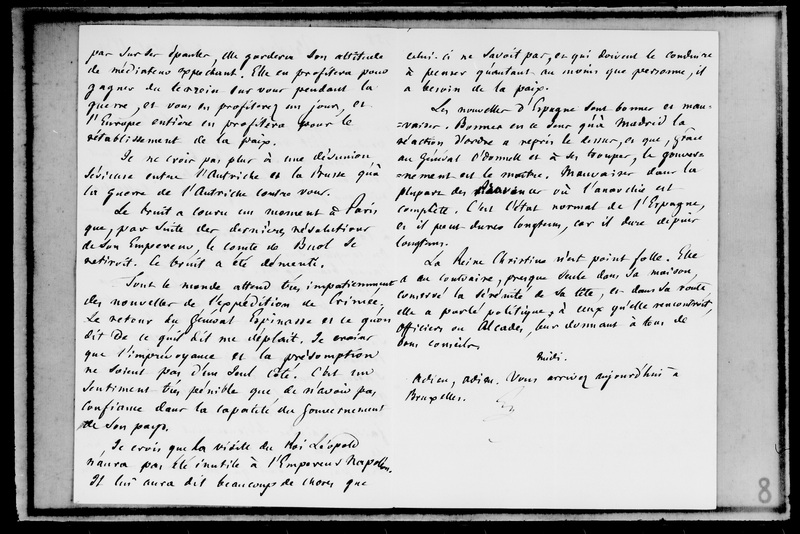 par sur ses épaules, elle gardera son attitude
de médiateur expectant. Elle en profitera pour
gagner du terrain sur vous pendant la
guerre, et vous en profiterez un jour, et
l'Europe entière en profitera pour le
rétablissement de la paix.
Je ne crois pas plus à une désunion
sérieuse entre l'Autriche et la Prusse qu'à
la guerre de l'Autriche contre vous.
Le bruit a couru un moment à Paris
que, par suite des dernières résolutions
de son Empereur, le comte de Buol se
retiroit. Le bruit a été démenti.
Tout le monde attend très impatiemment
des nouvelles de l'expédition de Crimée.
Le retour du Général Espinasse et ce qu'on
dit de ce qu'il dit me déplait. Je crains
que l'imprévoyance et la présomption
ne soient pas d'un seul côté. C'est un
sentiment très pénible que de n'avoir pas
confiance dans la capacité du Gouvernement
de son pays.
Je crois que la visite du Roi Léopold
n'aura pas été inutile à l'Empereur Napoléon.
Il lui aura dit beaucoup de choses que
celui-ci ne savoit pas, et qui doivent le conduire
à penser qu'autant au moins que personne, il
a besoin de la paix.
Les nouvelles d'Espagne sont bonnes et mau-
-vaises. Bonnes en ce sens qu'à Madrid la
réaction d'ordre a repris le dessus, et que, grâce
au Général O'donnell et à ses troupes, le gouver-
-nement est le maître. Mauvaises dans la
plupart des provinces où l'anarchie est
complète. C'est l'état normal de l'Espagne,
et il peut durer longtems, car il dure depuis
longtems.
La Reine Christine n'est point folle. Elle
a au contraire, presque seule dans sa maison,
conservé la sérénité de sa tête, et dans sa route,
elle a parlé politique à ceux qu'elle rencontroit,
officiers ou Alcades, leur donnant à tous de
bons conseils.
Midi.
Adieu, adieu. Vous arrivez aujourd'hui à
Bruxelles.
8